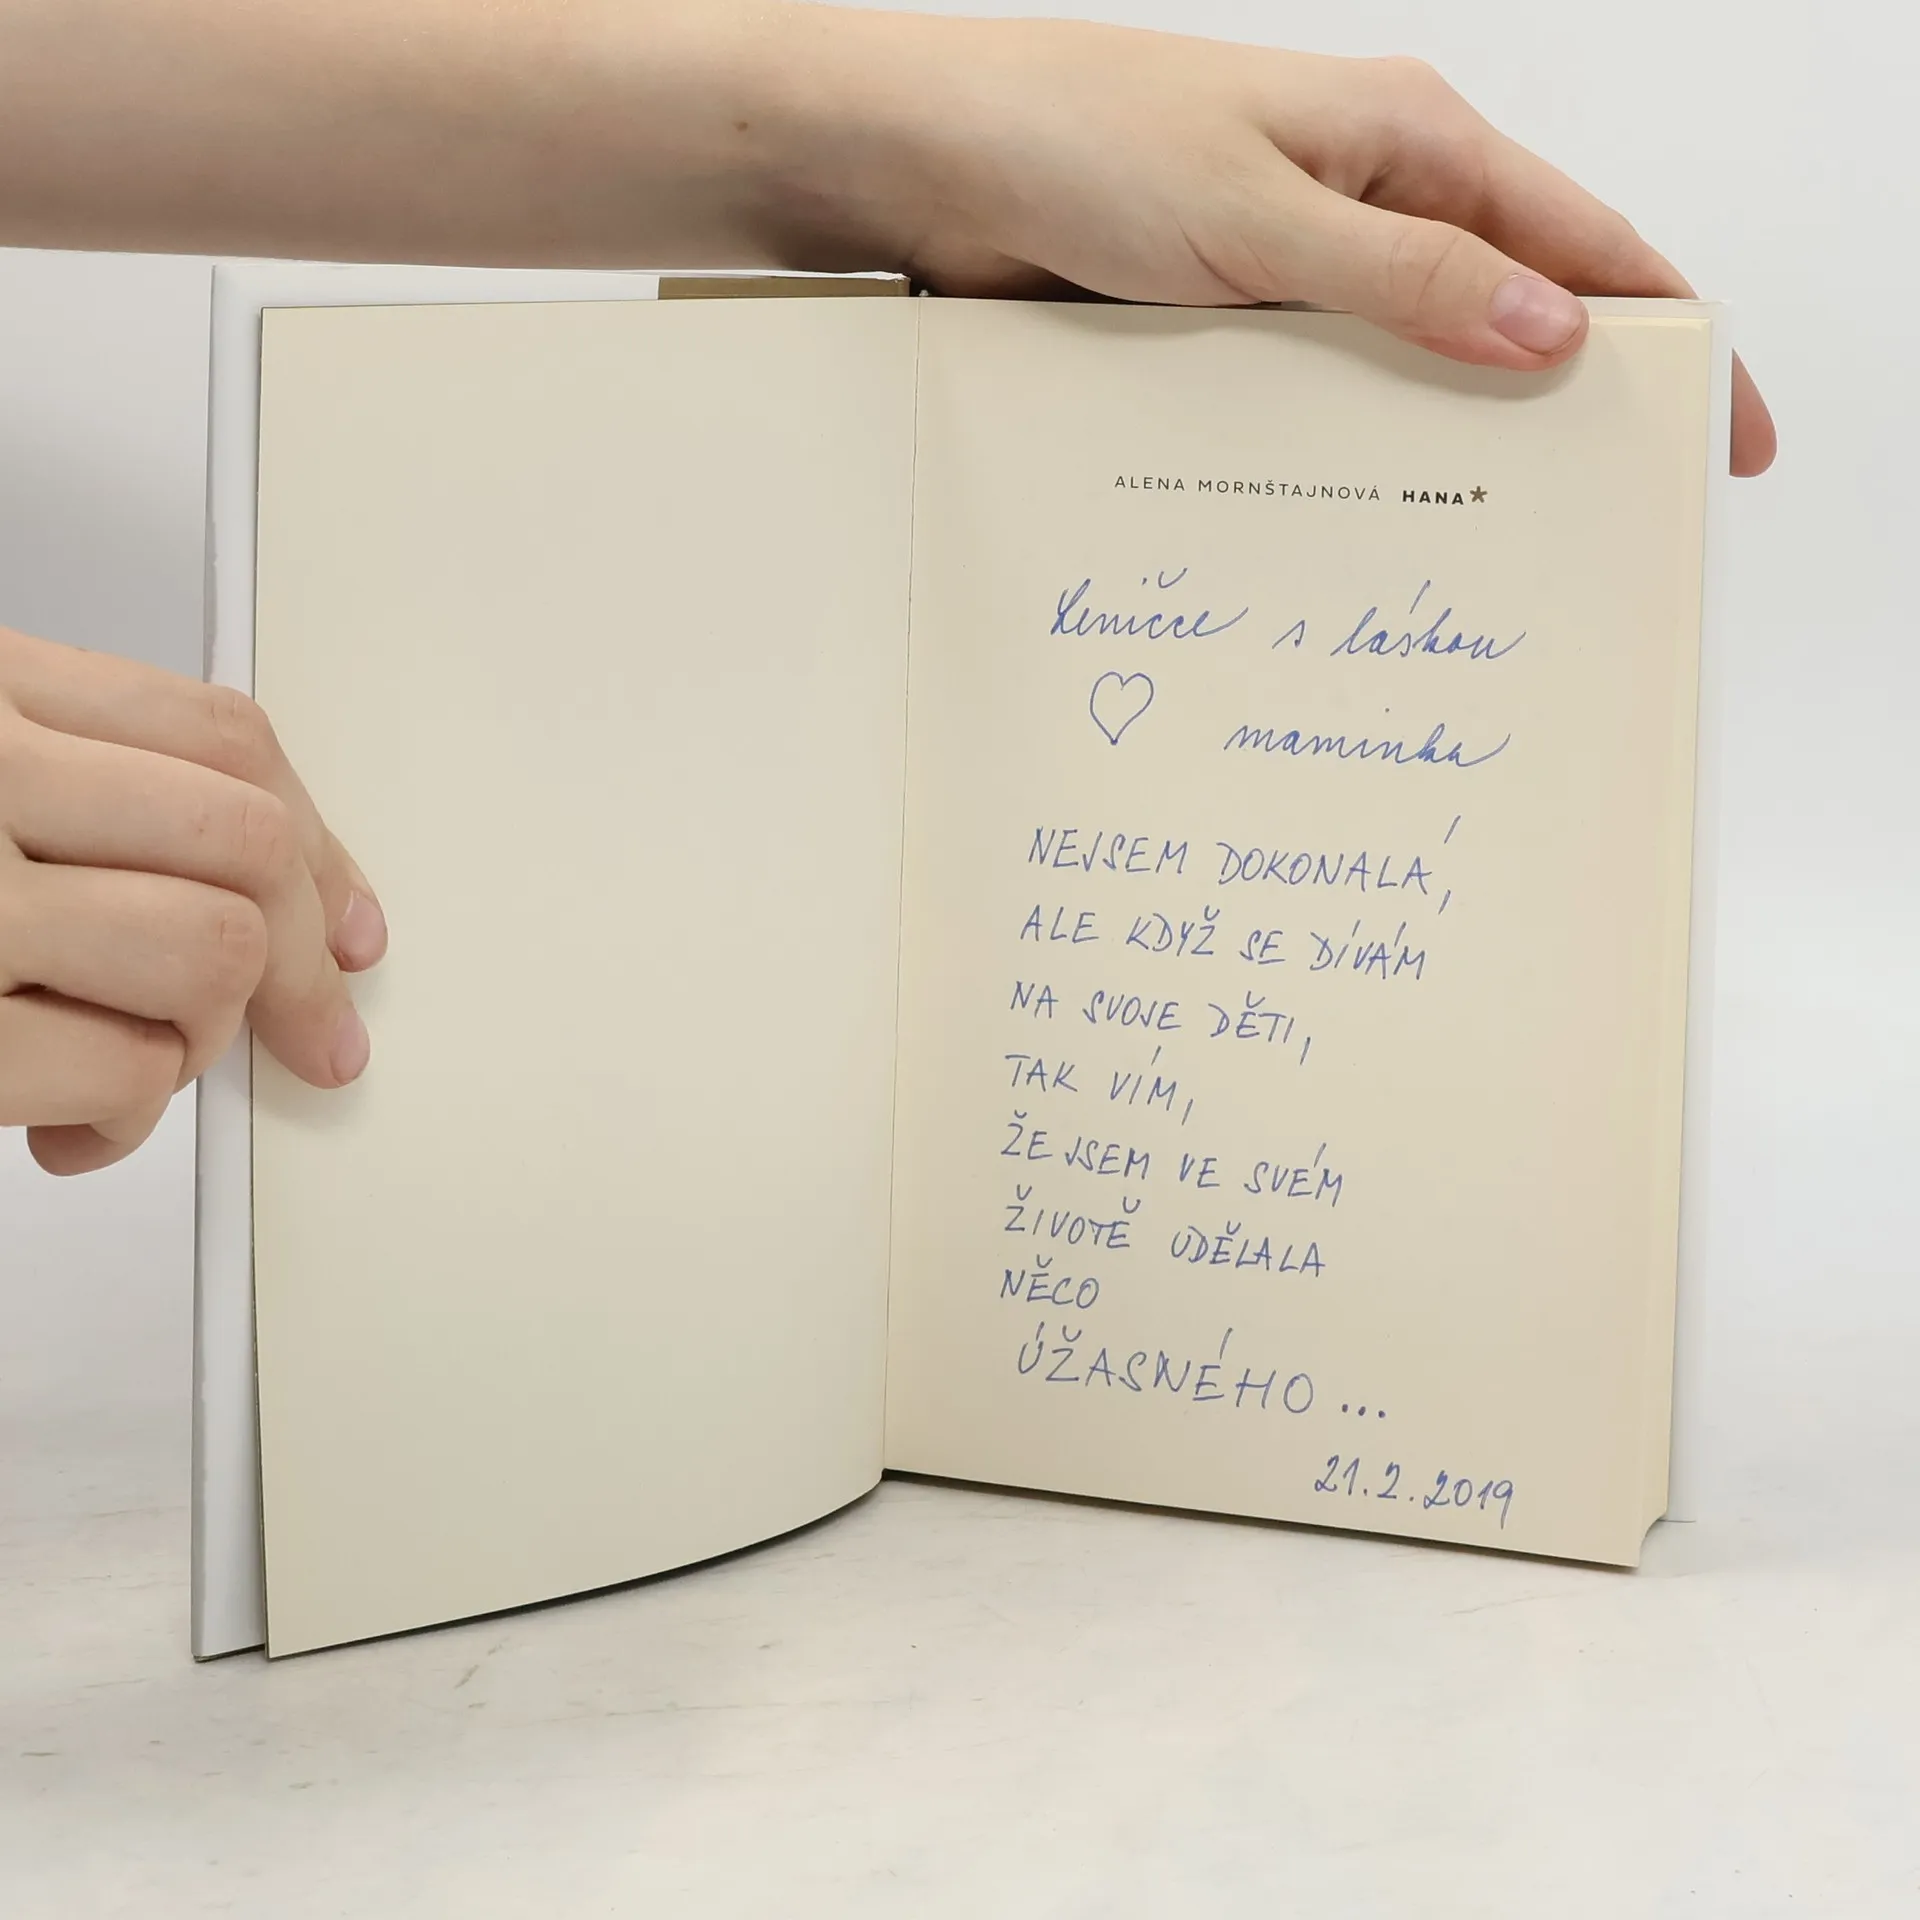 ALENA MORNŠTAJNOVÁ HANA*
Leničce s láskou
♡ maminka
NEJSEM DOKONALÁ,
ALE KDYŽ SE DÍVÁM
NA SVOJE DĚTI,
TAK VÍM,
ŽE JSEM VE SVÉM
ŽIVOTĚ UDĚLALA
NĚCO
ÚŽASNÉHO...
21.2.2019